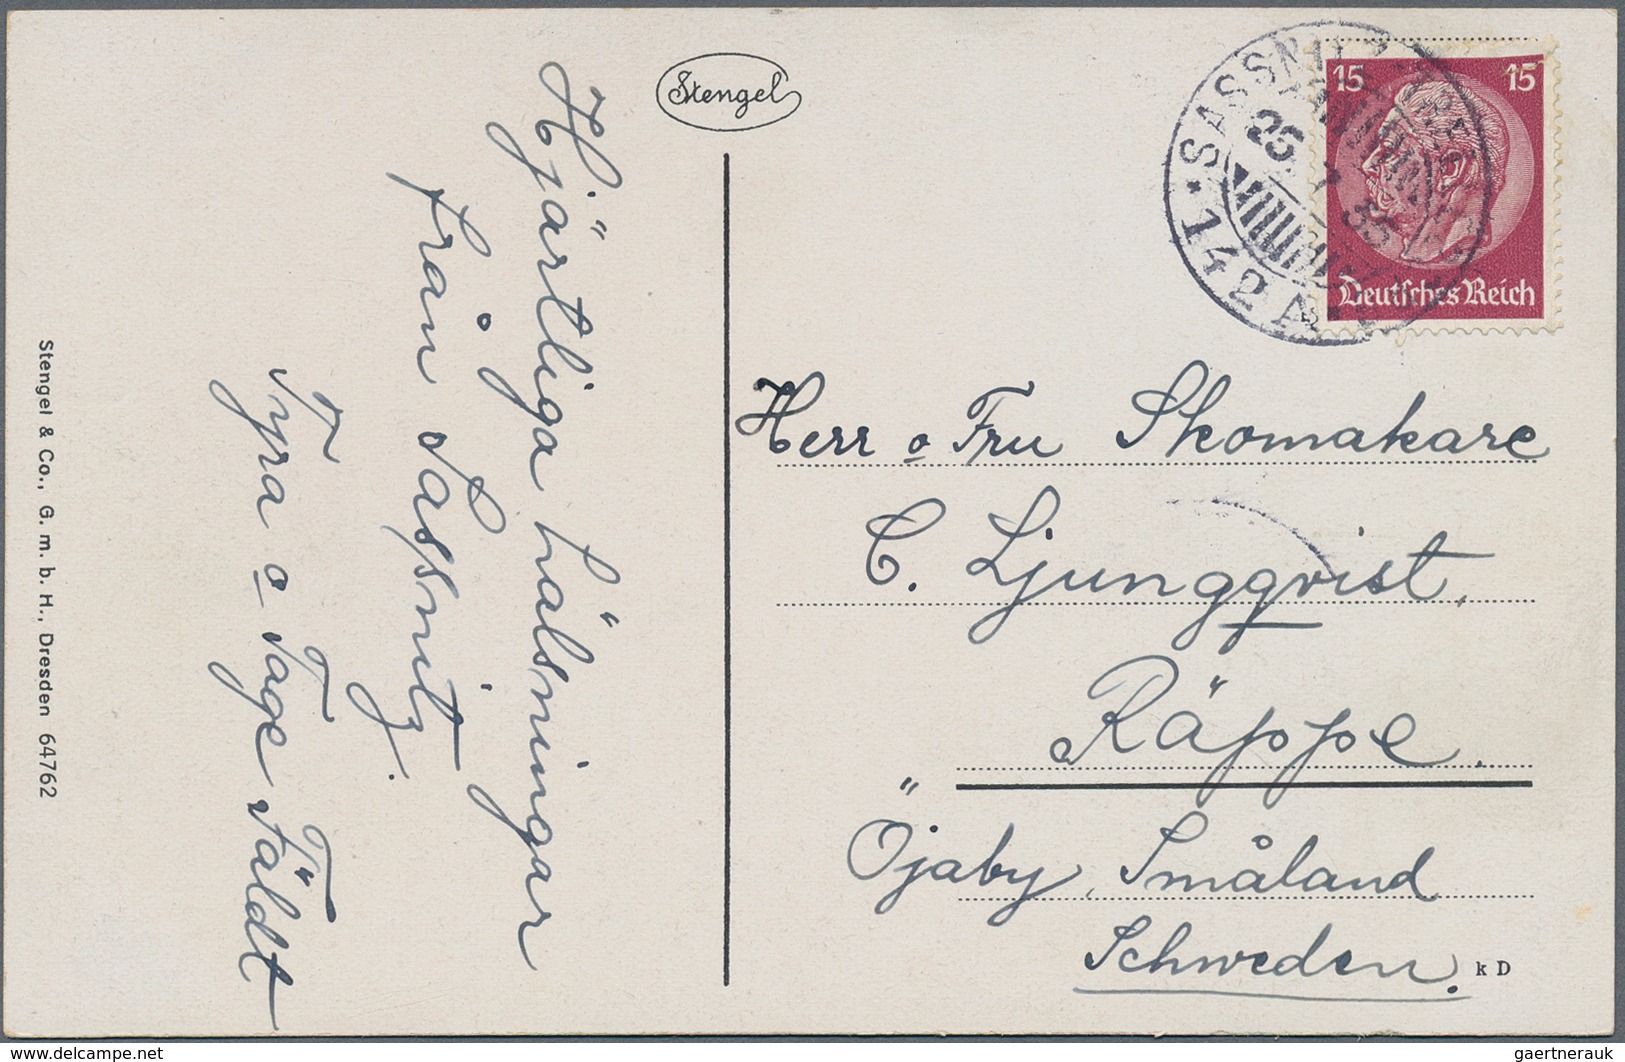 Stengel
Hjärtliga hälsningar
från Sassnitz.
Tyra o Tage Fäldt
Stengel & Co., G. m. b. H., Dresden 64762
SASSNITZ
142 A
15 15
Deutsches Reich
Herr o Fru Skomakare
C. Ljungqvist,
Räppe.
Öjaby, Småland
Schweden.
k D
www.delcampe.net
gaertnerauk